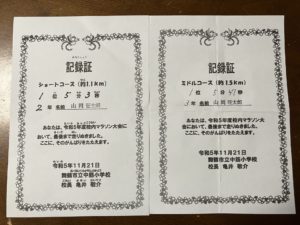 記録証
ショートコース (約1.1km)
1位 5分 3秒
2年 名前 山岡
あなたは、令和5年度校内マラソン大会
において、最後まで走りぬきました。
ここに、そのがんばりをたたえます。
令和5年11月21日
舞鶴市立中筋小学校
校長 亀井 敬介
記録証
ミドルコース (約1.5km)
1位 5分47秒
3年 名前 山岡
あなたは、令和5年度校内マラソン大
会において、最後まで走りぬきました。
ここに、そのがんばりをたたえます。
令和5年11月21日
舞鶴市立中筋小学校
校長 亀井 敬介